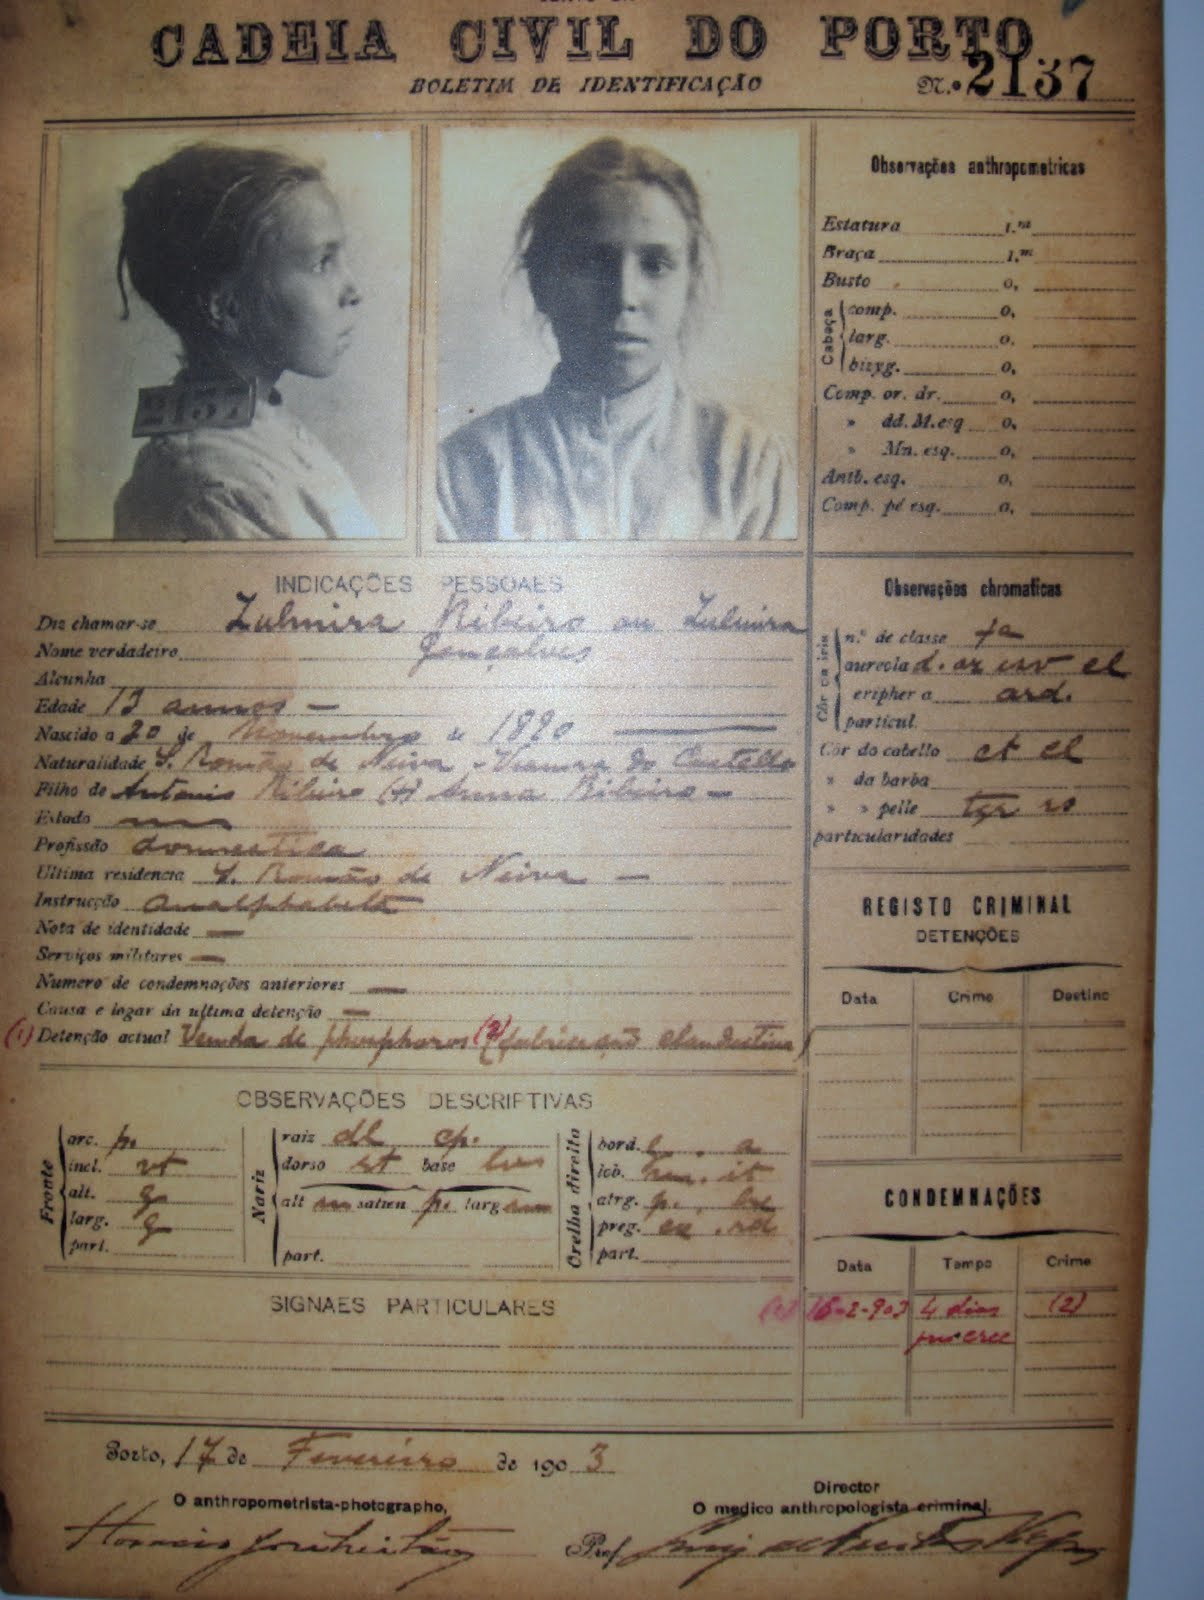 CADEIA CIVIL DO PORTO
BOLETIM DE IDENTIFICAÇÃO
N.º 2137
2137
Observações anthropometricas
Estatura 1.m
Braça 1.m
Busto 0,
Cabeça
comp. 0,
larg. 0,
bizyg. 0,
Comp. or. dr. 0,
» dd. M. esq 0,
» Mn. esq. 0,
Antb. esq. 0,
Comp. pé esq. 0,
INDICAÇÕES PESSOAES
Diz chamar-se Zulmira Ribeiro ou Zulmira
Nome verdadeiro Gonçalves
Alcunha
Edade 12 annos —
Nascido a 20 de Novembro de 1890
Naturalidade S. Romão de Neiva - Vianna do Castello
Filho de Antonio Ribeiro (+) Anna Ribeiro —
Estado
Profissão domestica
Ultima residencia S. Romão de Neiva —
Instrucção analphabeta
Nota de identidade —
Serviços militares —
Numero de condemnações anteriores —
Causa e logar da ultima detenção —
(1) Detenção actual Venda de phosphoros (2) (fabricação clandestina)
Observações chromaticas
Côr da iris
n.º de classe
aureola
eripheria ard.
particul.
Côr do cabello ct cl
» da barba
» » pelle
particularidades
REGISTO CRIMINAL
DETENÇÕES
Data Crime Destino
OBSERVAÇÕES DESCRIPTIVAS
Fronte
arc. p.
incl. vt
alt. g
larg. g
part.
Nariz
raiz cp.
dorso rt base
alt m salien p. larg
part.
Orelha direita
bord.
lob.
atrg. p.
preg.
part.
CONDEMNAÇÕES
Data Tempo Crime
16-2-903 4 dias (2)
SIGNAES PARTICULARES
Porto, 17 de Fevereiro de 1903
O anthropometrista-photographo,
Director
O medico anthropologista criminal.
Prof